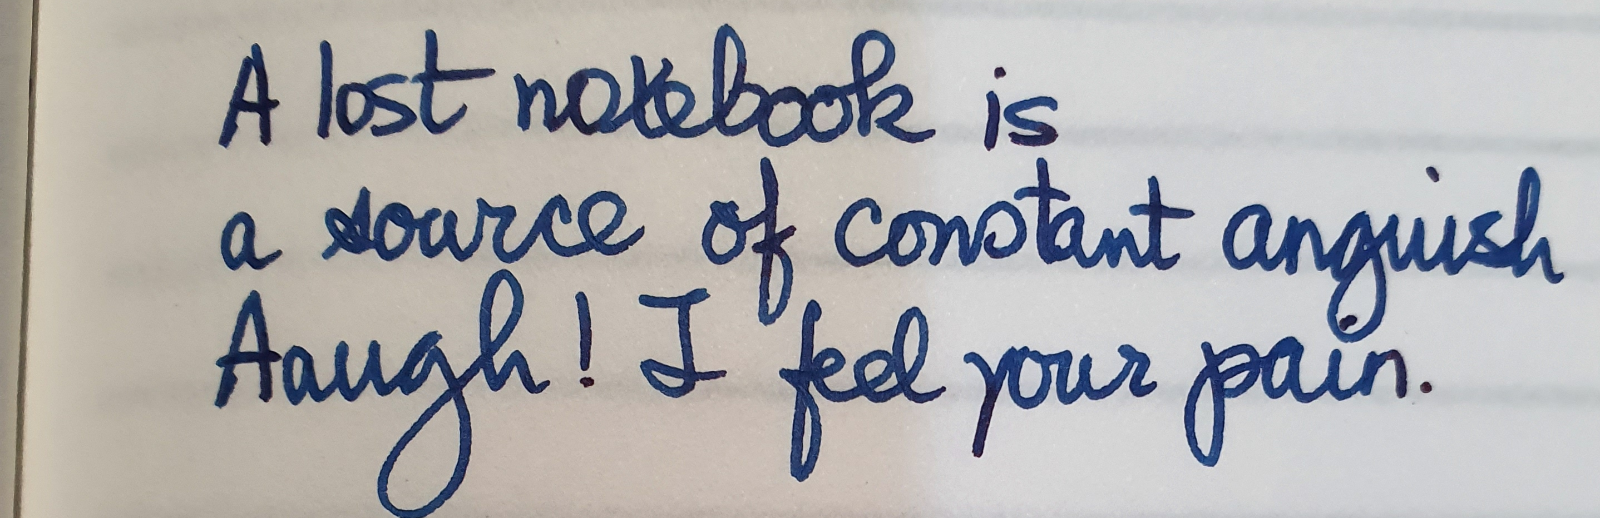 A lost notebook is
a source of constant anguish
Aaugh! I feel your pain.